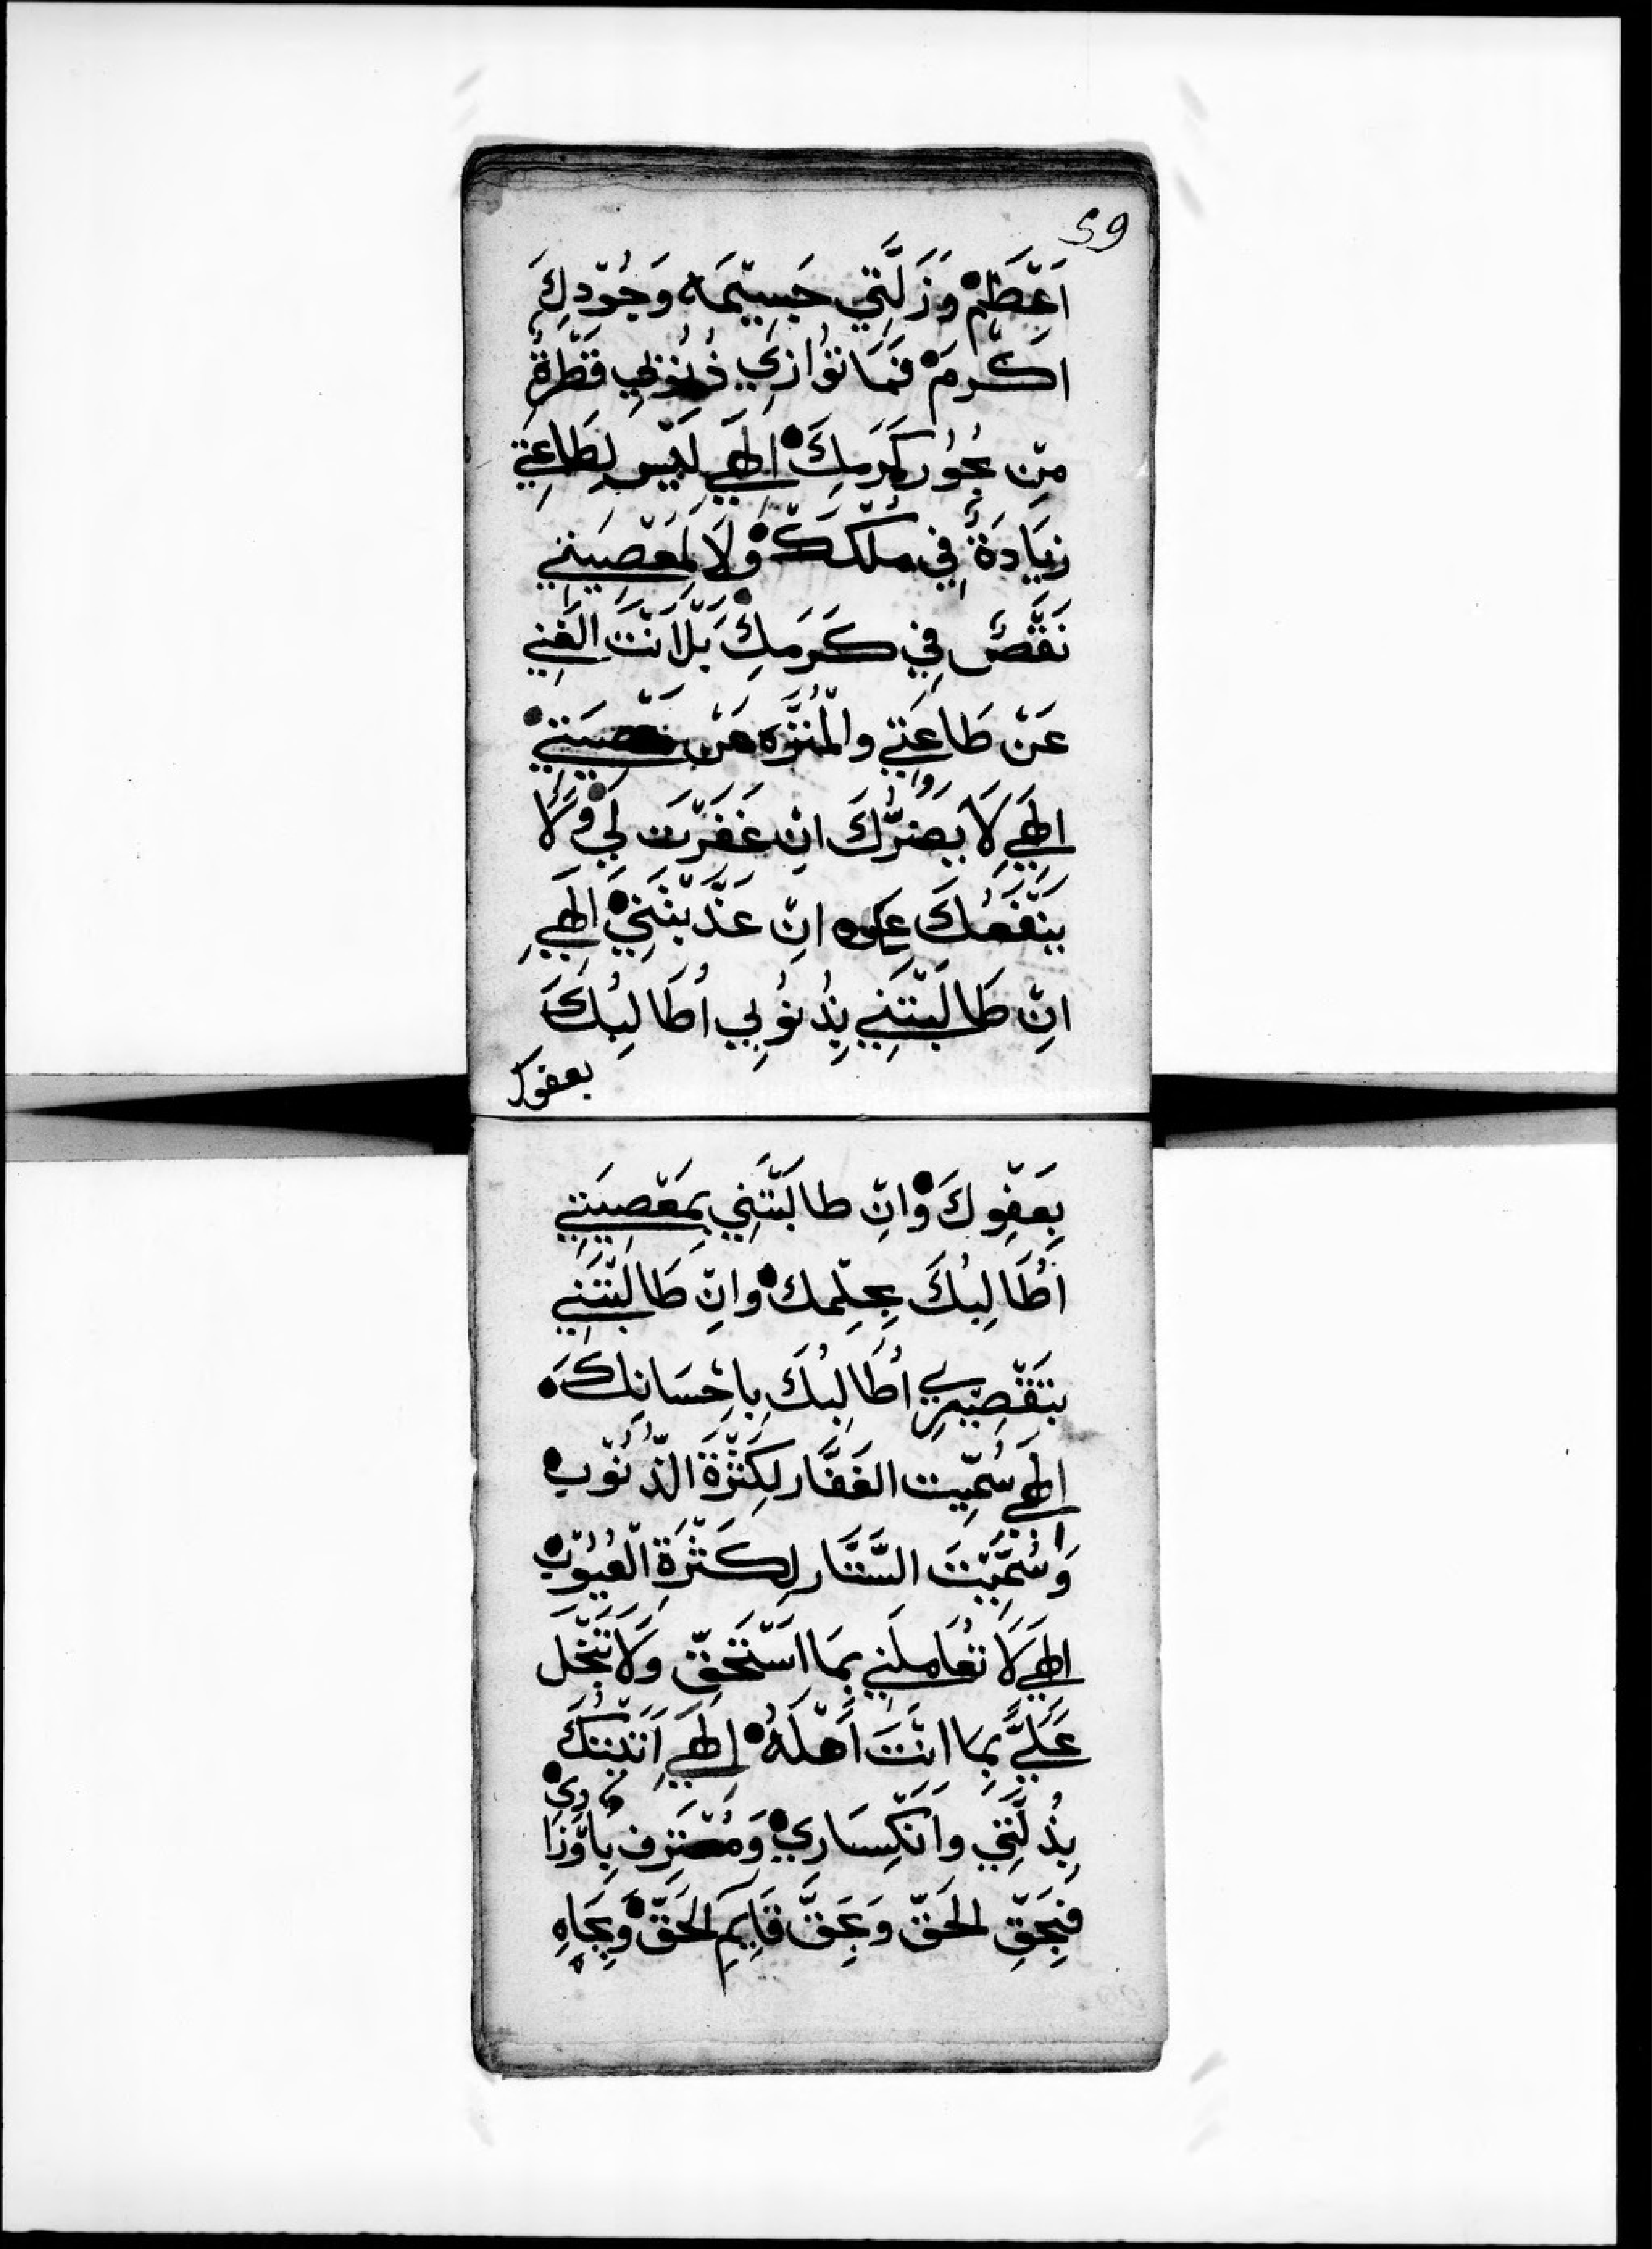 59
اَعْظَمْ وَزَلَّتِي جَسِيْمَه وَجُوْدِكَ
اكْرَمْ فَمَا تُوَازِي ذُنُوْبِي قَطْرَةٌ
مِنْ بُحُوْر كَرَمِكَ الَهِي لَيْسَ لِطَاعَتِي
زِيَادَةٌ فِي مُلْكَكَ وَلَا لِمَعْصِيَتِي
نَقْصٌ فِي كَرَمِكْ بَلْ اَنْتَ الغَنِي
عَنْ طَاعَتِي والْمُنَزَّه عَنْ مَعْصِيَتِي
الَهِي لَا يَضُرُّكَ اِنْ غَفَرْت لِي وَلَا
يَنْفَعُكَ اِنْ عَذَّبْتَنِي اَلَهِي
اِنْ طَالَبْتَنِي بِذُنُوبِي اُطَالِبُكَ
بعفوك
بِعَفْوِكَ وَاِنْ طالَبْتَنِي بِمَعْصِيَتِي
اُطَالِبُكَ بِحِلْمِكَ وانْ طَالَبْتَنِي
بِتَقْصِيْرِي اُطَالِبُكَ بِاِحْسَانِكَ
الَهِي سُمِّيْت الغَفَّار لِكَثْرَة الذُّنُوْب
وَسُمِّيْتَ السَّتَّار لِكَثْرَةِ الْعُيُوْب
الَهِي لَا تُعَامِلْنِي بِمَا اسْتَحِقّ وَلَا تَبْخَل
عَلَيَّ بِمَا انْتَ اَهْلَهُ اِلَهِي اَتَيْتُكَ
بِذُلَّتِي وانْكِسَارِي وَمُعْتَرِف بِاَوْزَا
رِي
فَبِحَقِّ الْحَقّ وَبِحَقّ قَايِمِ الْحَقّ وَبِجَاهِ